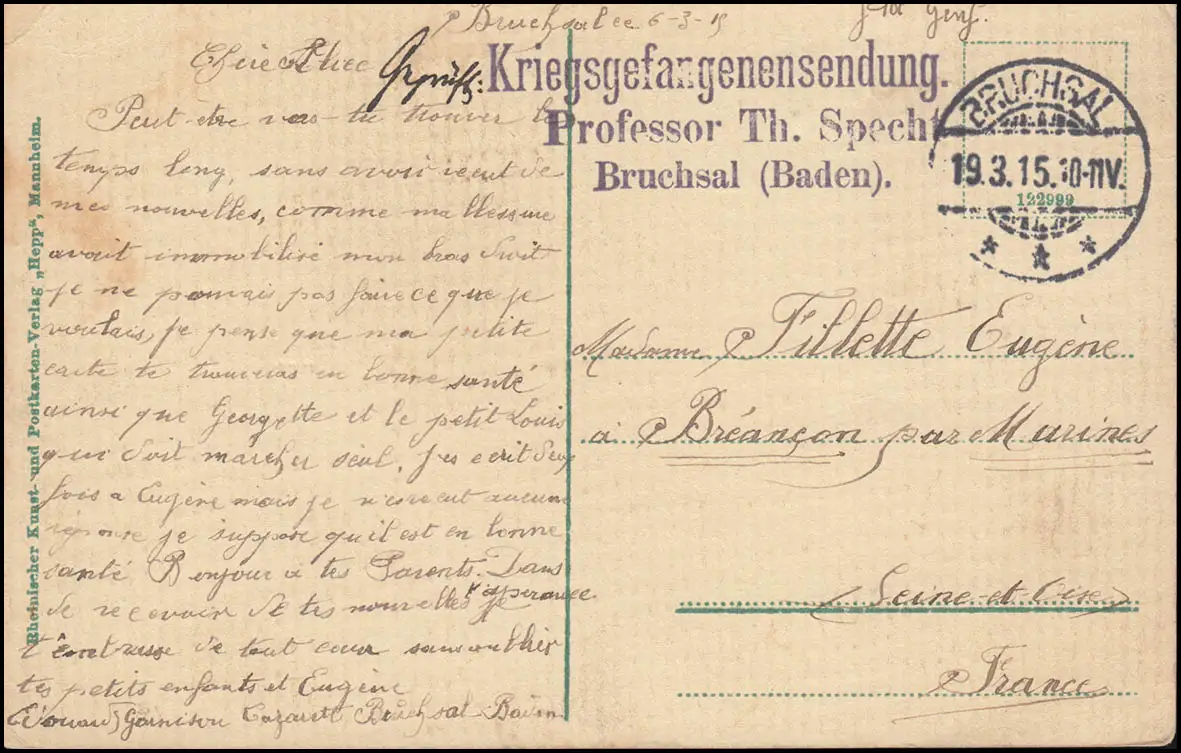 Bruchsal le 6-3-15
Geprüft:
Kriegsgefangenensendung.
Professor Th. Specht
Bruchsal (Baden).
BRUCHSAL
19.3.15.10-11V.
122999
Rheinischer Kunst- und Postkarten-Verlag „Hepp“, Mannheim.
Peut-être vas-tu trouver le
temps long, sans avoir reçut de
mes nouvelles, comme ma blessure
avait immobilisé mon bras droit
je ne pouvais pas faire ce que je
voulais, je pense que ma petite
carte te trouveras en bonne santé
ainsi que Georgette et le petit Louis
qui doit marcher seul, j'es ecrit deux
fois a Eugène mais je n'es recut aucune
réponse je suppose qu'il est en bonne
santé Bonjour a tes Parents. Dans
l'esperance
de recevoir de tes nouvelles je
t'embrasse de tout coeur sans oublier
tes petits enfants et Eugène
Edouard Garnison Lazarett Bruchsal Baden
Madame Fillette Eugène
à Bréançon par Marines
(Seine-et-Oise)
France